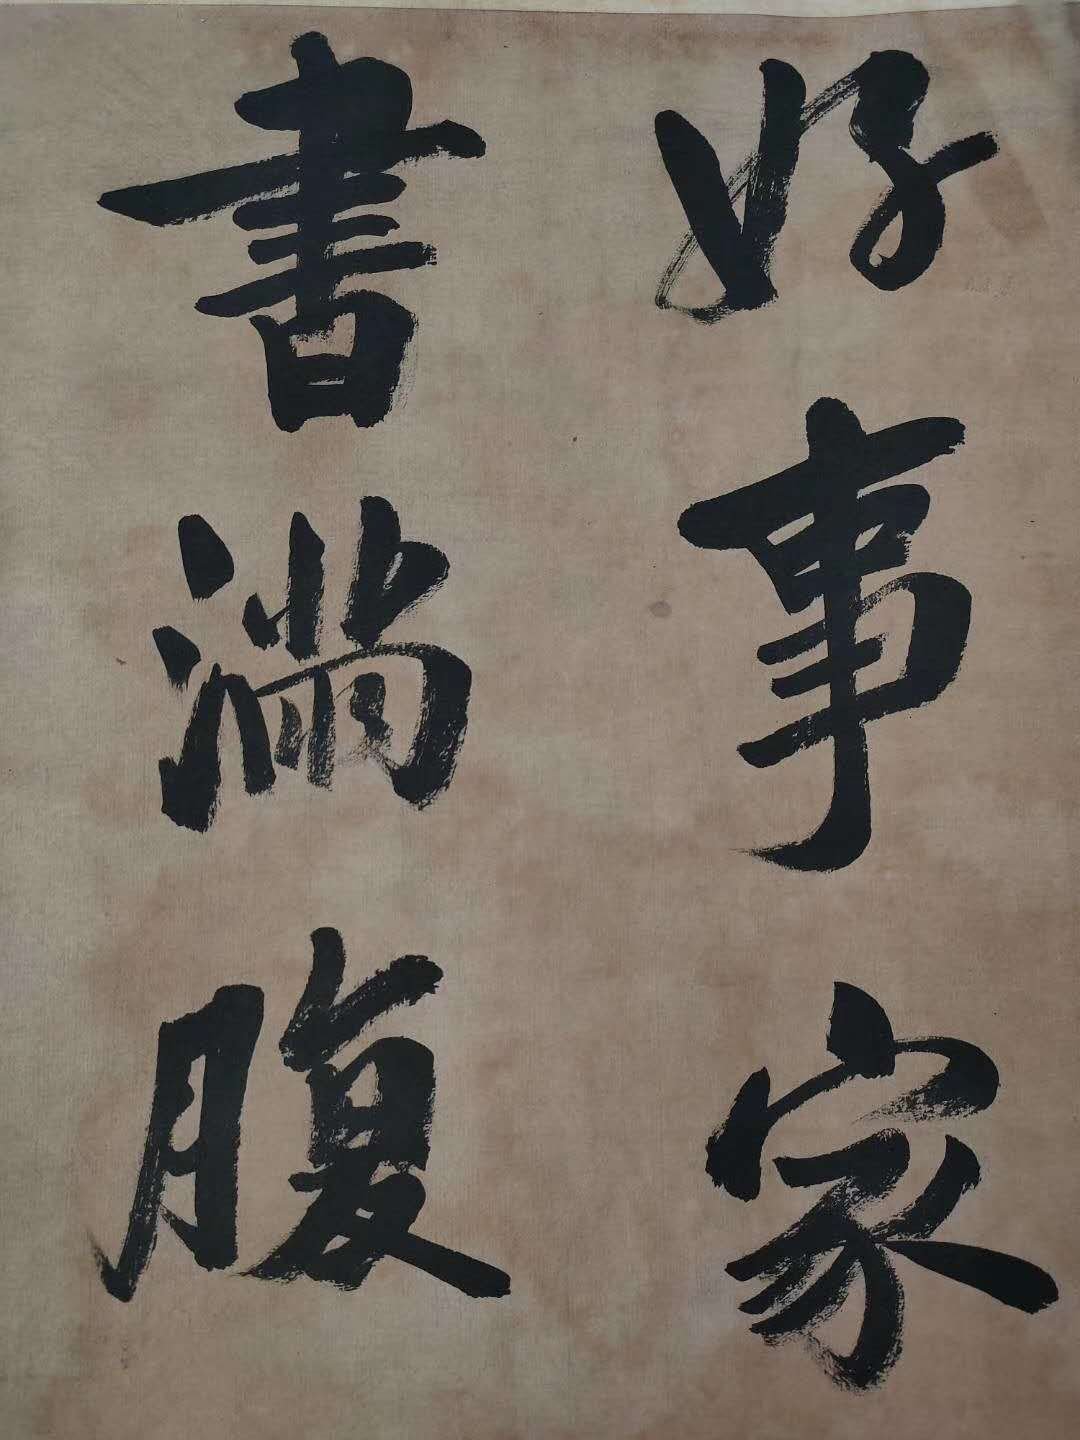 好事家
書滿腹